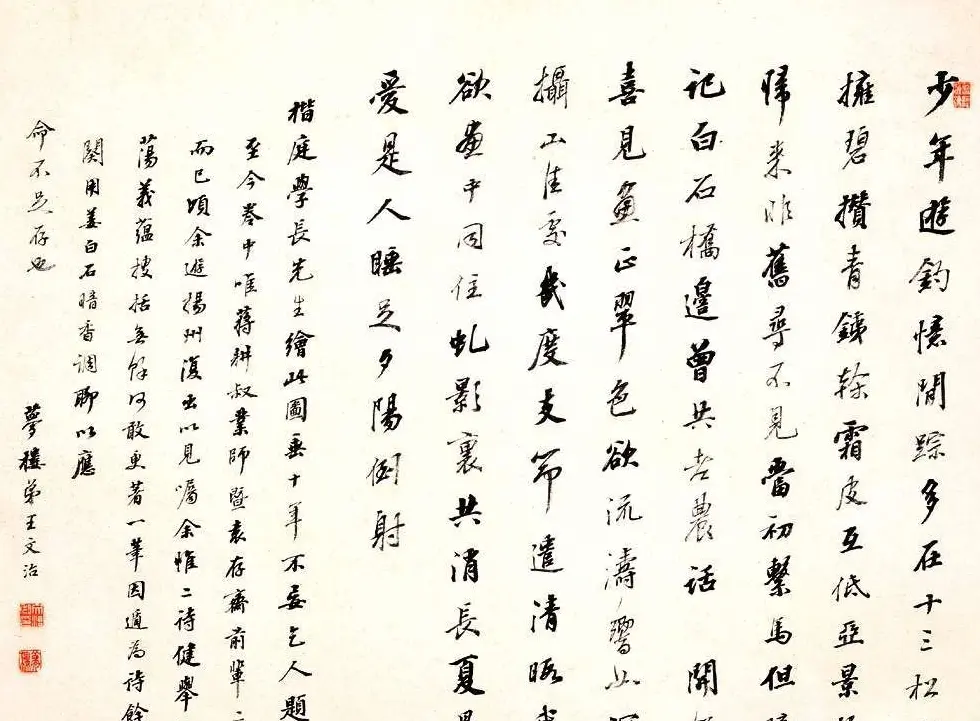 少年遊釣憶閒踪多在十三松
擁碧攢青鐵幹霜皮互低亞景
歸来昨舊尋不見當初繫馬但
記白石橋邊曾共老農話 開
喜見畫正翠色欲流濤響
攝山佳處幾度支筇遣清暇
欲畫中同住虬影裏共消長夏
愛是人睡足夕陽倒射
楷庭學長先生繪此圖垂十年不妄乞人題
至今卷中唯蔣耕叔業師暨袁存齋前輩二
而已頃余遊揚州復出以見囑余惟二詩健舉
蕩義蘊捜括無餘何敢更著一筆因適為詩餘
関用姜白石暗香調聊以應
命不足存也
夢樓弟王文治